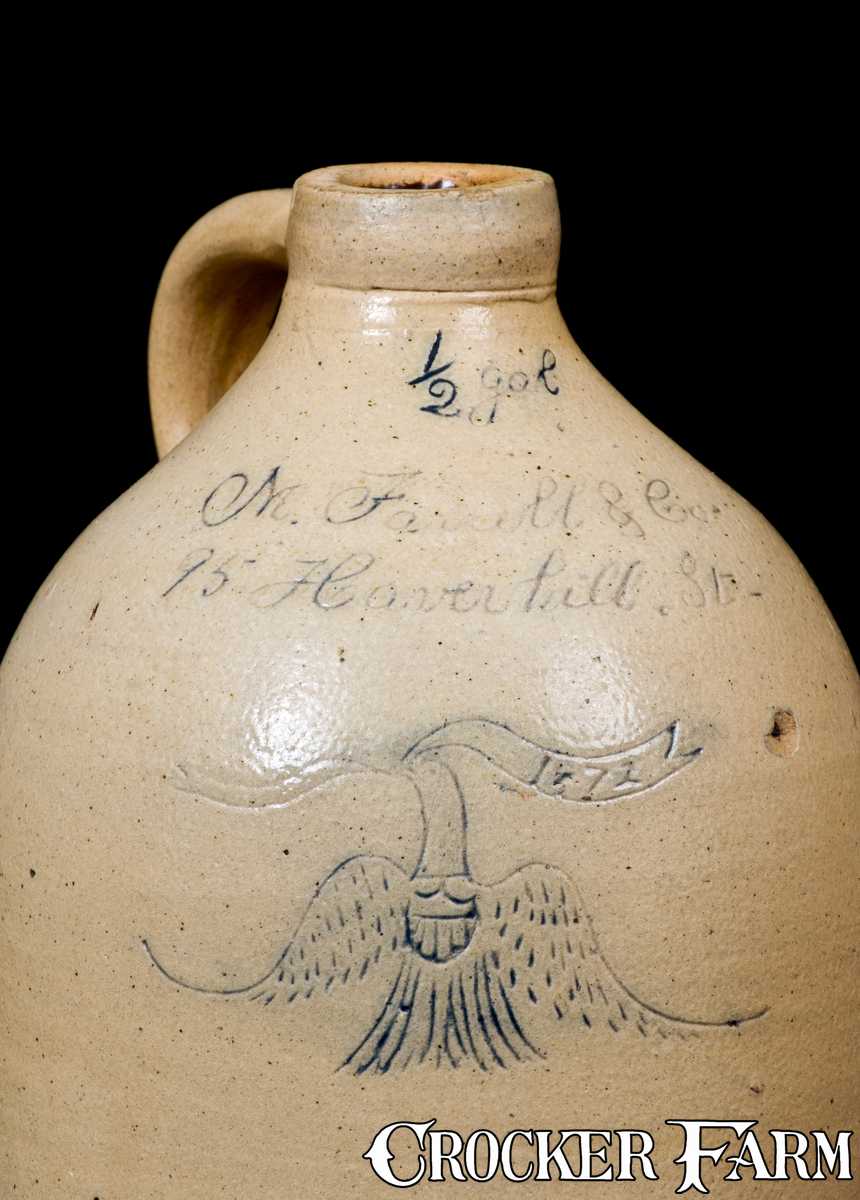 1/2 gal
M. Farrell & Co.
95 Haverhill. St.
1872
CROCKER FARM